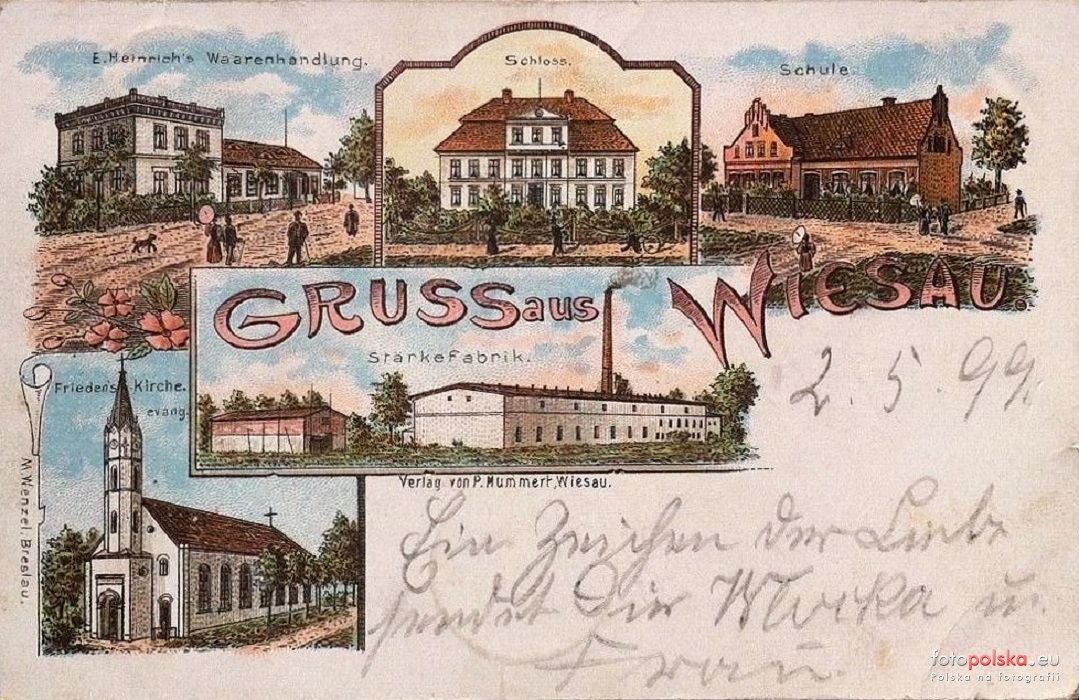 E. Heinrich's Waarenhandlung.
Schloss.
Schule
GRUSS aus WIESAU.
Stärkefabrik.
Friedens Kirche.
evang.
2. 5. 99.
Verlag von P. Hummert, Wiesau.
M. Wenzel. Breslau.
Ein Zeichen der Liebe
sendet Dir u.
Frau
fotopolska.eu
Polska na fotografii